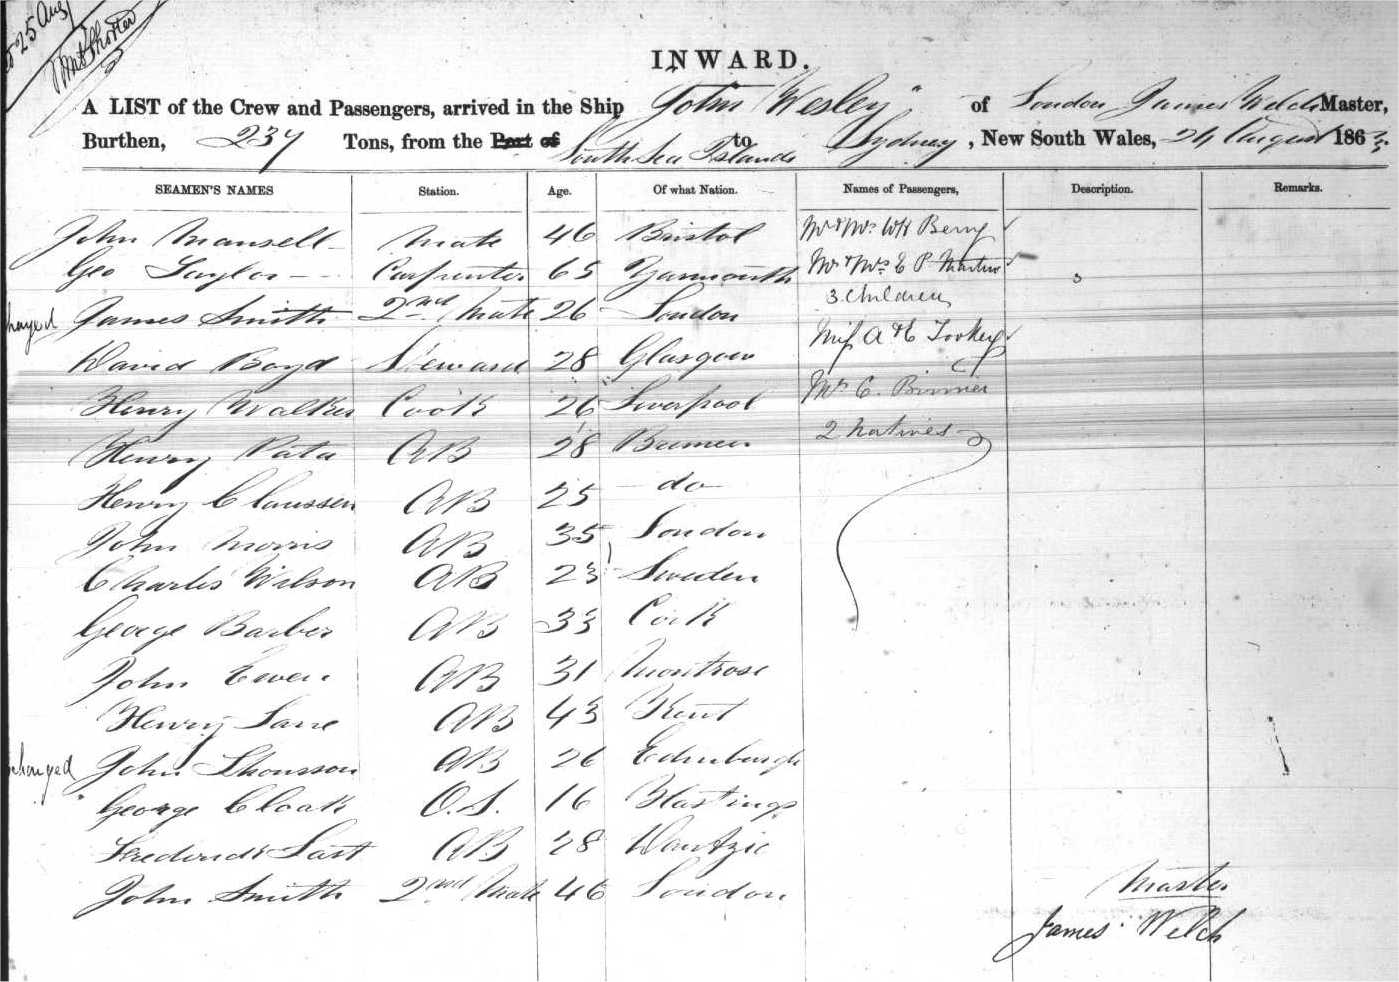 25 Aug
INWARD.
A LIST of the Crew and Passengers, arrived in the Ship "John Wesley" of London James Welch Master,
Burthen, 237 Tons, from the Port of South Sea Islands to Sydney, New South Wales, 24 August 1863.
SEAMEN'S NAMES Station. Age. Of what Nation. Names of Passengers, Description. Remarks.
John Mansell Mate 46 Bristol Mr & Mrs W H Berry
Geo Taylor Carpenter 65 Yarmouth Mr & Mrs E P Martin
3 Children
James Smith 2nd Mate 26 London
David Boyd Steward 28 Glasgow Miss A & E Tookey
Henry Walker Cook 26 Liverpool Mr C.
Henry 28 AB Bremen 2 Natives
Henry Claussen AB 25 do
John Morris AB 35 London
Charles Wilson AB 23 Sweden
George Barber AB 33 Cork
John Ewen AB 31 Montrose
Henry Lane AB 43 Kent
John AB 26 Edinburgh
George Cloak O.S. 16 Hastings
Frederick Last AB 28 Dantzic
John Smith 2nd Mate 46 London
Master
James Welch